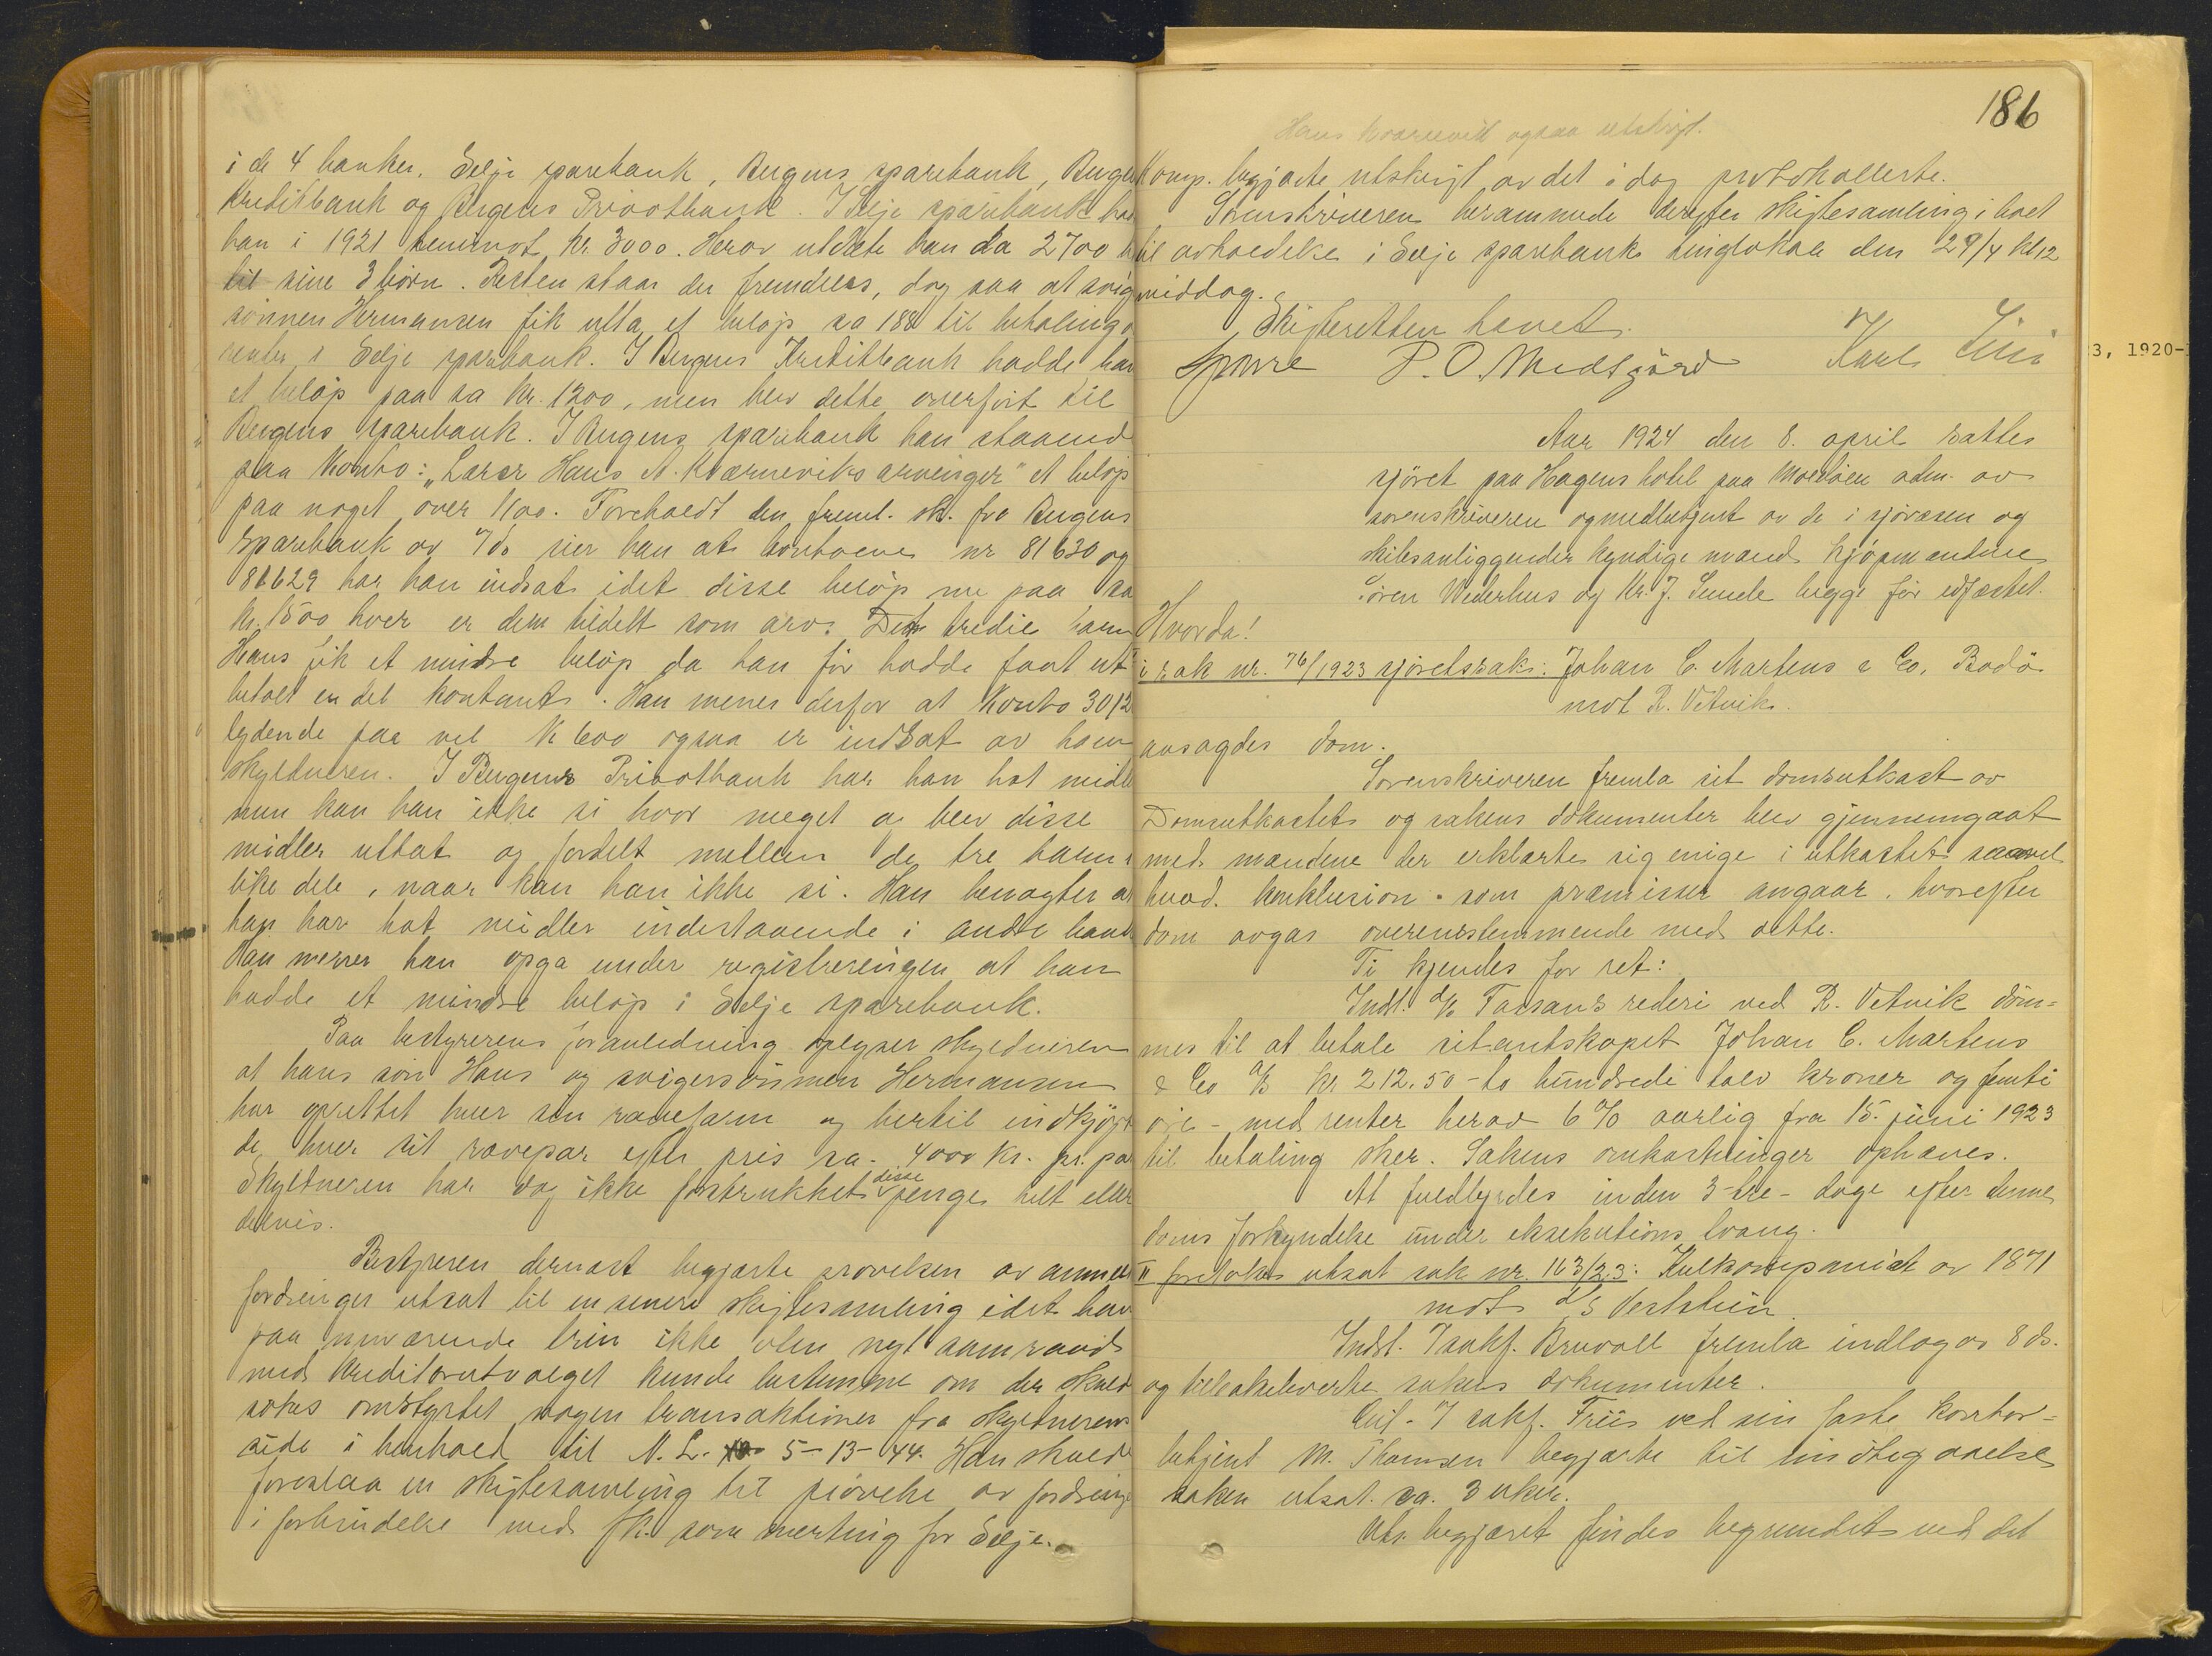 i de 4 banker. Selje sparebank, Bergens sparebank, Bergen
Kreditbank og Bergens Privatbank. I Selje sparebank ha
han i 1921 henimot kr. 3000. Herav utdelte han da 2700 k
til sine 3 börn. Resten staar der fremdeles, dog saa at svig
sönnen Hermansen fik utta et belöp ca 188 til betaling a
renter i Selje sparebank. I Bergens Kreditbank hadde han
et belöp paa ca kr. 1200, men blev dette overfört til
Bergens sparebank. I Bergens sparebank han staaend
paa Konto: "Lærer Hans A. Kverneviks arvinger" et belöp
paa noget over 1100. Foreholdt den freml. sk. fra Bergens
sparebank av 7/ds sier han at kontoene nr 81630 og
81629 har han indsat idet disse belöp nu paa ca
kr. 1500 hver er dem tildelt som arv. Det tredie barn
Hans fik et mindre belöp da han för hadde faat ut
betalt en del kontant. Han mener derfor at Konto 3012
lydende paa vel K 600 ogsaa er indsat av ham
skyldneren. I Bergens Privatbank har han hat midle
men kan han ikke si hvor meget og blev disse
midler uttat og fordelt mellem de tre barn i
like dele, naar kan han ikke si. Han benegter at
han har hat midler indestaaende i andre bank
Han mener han opga under registreringen at han
hadde et mindre belöp i Selje sparebank.
Paa bestyrerens foranledning oplyser skyldneren
at hans sön Hans og svigersönnen Hermansen
har oprettet hver sin rævefarm og hertil indkjöpt
de hver sit rævepar efter pris ca. 4000 kr. pr. pa
Skyldneren har dog ikke forstrukket disse penge helt eller
delvis.
Bestyreren dernæst begjærte prövelsen av anmel
fordringer utsat til en senere skiftesamling idet han
paa nuværende trin ikke uten nyt samraad
med kreditorutvalget kunde bestemme om der skuld
sökes omstyrtet nogen transaktioner fra skyldnerens
side i henhold til N. L. 5-13-44. Han skuld
foreslaa en skiftesamling til prövelse av fordringe
i forbindelse med fk. som mertting for Selje.
186
Hans Kvernevik ogsaa utskrift.
Komp. begjærte utskrift av det idag protokollerte.
Sorenskriveren berammede derefter skiftesamling i boet
til avholdelse i Selje sparebanks tinglokale den 29/4 kl 12
middag.
Skifteretten hævet.
Sparre P. O. Medsgård Karl
Aar 1924 den 8. april sattes
sjöret paa Hagens hotel paa Moldöen adm. av
sorenskriveren og medbetjent av de i sjövæsen og
skibsanliggender kyndige mænd kjöpmændene
Sören Wederhus og Kr. J. Sunde begge för edfæstet.
Hvorda!
i sak nr. 76/1923 sjöretssak: Johan C. Martens & Co, Bodö
mot R. Vetvik.
avsagdes dom.
Sorenskriveren fremla sit domsutkast av
Domsutkastet og sakens dokumenter blev gjennemgaat
med mændene der erklærte sig enige i utkastet saavel
hvad konklusion som præmisser angaar, hvorefter
dom avgas overensstemmende med dette.
Ti kjendes for ret:
Indst. d/s Tarzans rederi ved R. Vetvik döm=
mes til at betale citantskapet Johan C. Martens
& Co A/S kr 212.50 - to hundrede tolv kroner og femti
öre - med renter herav 6 % aarlig fra 15. juni 1923
til betaling sker. Sakens omkostninger ophæves.
At fuldbyrdes inden 3 - tre - dage efter denne
doms forkyndelse under eksekutions tvang.
II foretokes utsat sak nr. 163/23: Kulkompaniet av 1871
mot d/s Veststein
Indst. / sakf. Bruvoll fremla indlæg av 8 ds.
og tilbakeleverte sakens dokumenter.
Cit. / sakf. Friis ved sin faste kontor=
betjent M. Thomsen begjærte til imötegaaelse
saken utsat ca. 3 uker.
Uts. begjæret findes begrundet ved det
3, 1920-